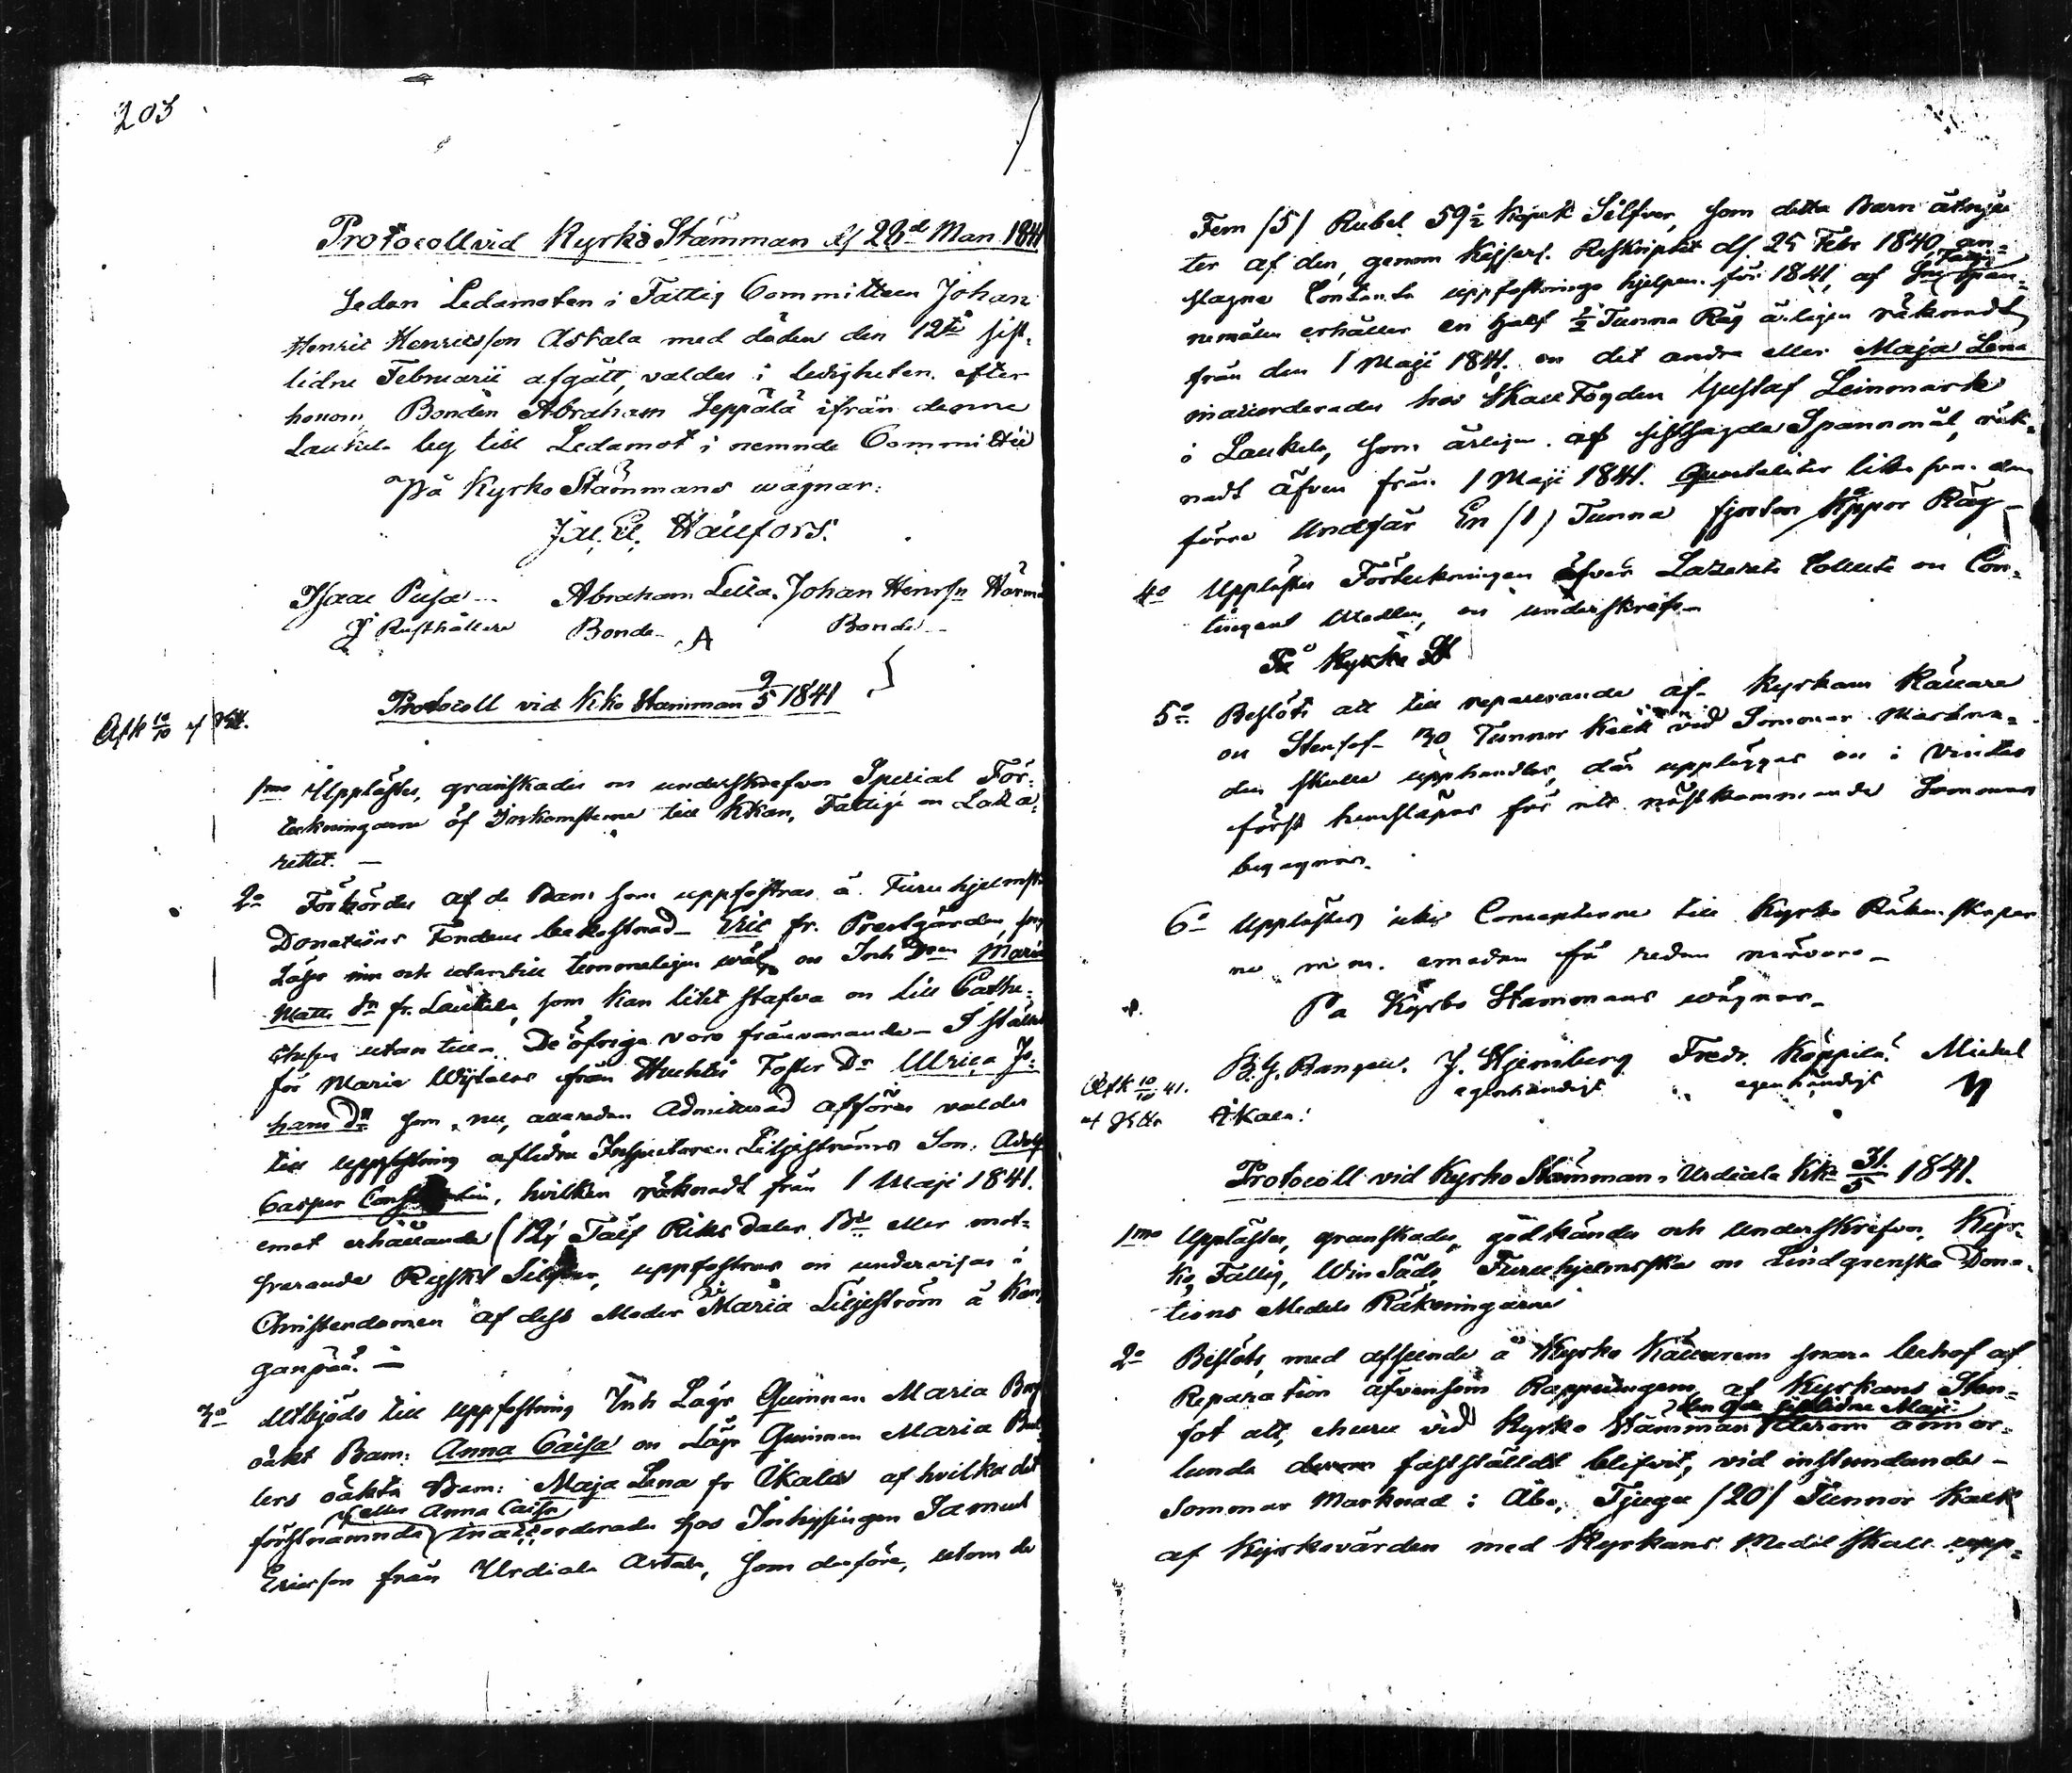 203
Protocoll vid Kyrko Stämman d. 28de Mars 1841
Sedan Ledamoten i Fattig Committeen Johan
Henric Henricsson Astala med döden den 12te sist-
lidne Februarii afgått, valdes i ledigheten efter
honom Bonden Abraham Seppälä ifrån denne
Laukela by till Ledamot i nemnde Committée
På Kyrko Stämmans wägnar:
Isaac Pusa Abraham Lella. Johan Henrsn
Rusthållare Bonde A Bonde
Protocoll vid Kko Stämman 9/5 1841
Afk 10/10 41
1mo Upplästes, granskades ou underskrefvos Special För-
teckningarne öf Inkomsterne till Kkan, Fattige ou Laza-
rettet. —
2o Förhördes af de Barn som uppfostras å Furuhjelmska
Donations Fondens bekostnad Eric fr. Prestgården, som
läser inn och utantill temmeligen wäl, ou Inh Dren Maria
Matts Dr fr. Laukela, som kan litet stafva ou till Cathe-
chesen utantill. De öfriga voro frånvarande. I stället
för Maria från Huhtis Foster Dr Ulrica Jo-
hans Dr som, nu, allaredan Admitterad afföres valdes
till uppfostring aflidne Inspectoren Liljeströms Son: Adolf
Casper , hvilken räknadt från 1 Maji 1841.
emot erhållande (12) Tålf Riksdaler Bco eller mot-
svarande Ryskt Silfver, uppfostras ou undervisas i
Christendomen af dess Moder Maria Liljeström å Kan-
ganpää. —
3o Utbjöds till uppfostring Inh Lägr Qwinnan Maria
oäkt Barn: Anna Caisa ou Lägr Qwinnan Maria
lers oäkta Barn: Maja Lena fr Åkala af hvilka det
förstnämnda eller Anna Caisa inackorderades hos Inhysingen Samuel
Ericsson från Urdiala Astala, som derföre, utom de
Fem (5) Rubel 59½ Kopek Silfver, som detta Barn åtnju-
ter af den, genom Keiserl. Reskriptet d. 25 Febr 1840, an-
slagne Contanta uppfostrings hjelpen för 1841, af Span-
nemålen erhåller en half ½ Tunna Råg årligen räknadt
från den 1 Maji 1841. ou det andra eller Maja Lena
inackorderades hos SkalleFogden Gustaf Leinmark
i Laukela, som årligen af sistsagde Spannmål, räk-
nadt äfven från 1 Maji 1841. Quartaliter lika som den
förra undfår En (1) Tunna fjorton Kappor Råg
4o Upplästes Förteckningen öfver Lazaretts Collecte ou Con-
tingent Medlen, ou underskrefs
På Kyrko St
5o Beslöts att till reparerande af Kyrkans Källare
ou Stenfot 30 Tunnor Kalk vid Sommar Marknа-
den skulle upphandlas, där uppläggas ou i Vinter
först hemsläpas för att nästkommande Sommar
begagnas.
6o Upplästes icke Concepterne till Kyrko Räkenskaper
ne m.m. emedan få redan närvoro
På Kyrko Stämmans wägnar
B.G. Rangell. J. Stjernberg Fredr. Köppilä Mickel
egenhändigt egenhändigt
Åkala:
Afk 10/10 41.
Protocoll vid Kyrko Stämman i Urdiala Kka 31/5 1841.
1mo Upplästes, granskades, godkändes och underskrefvos, Kyr-
ko, Fattig, Win Säds, Furuhjelmska ou Lindgrenska Dona-
tions Medels Räkningarne
2o Beslöts, med afseende å Kyrko Källarens svara behof af
Reparation äfvensom Rappningens af Kyrkans Sten-
fot att, ehuru vid Kyrko Stämman den 9de sistlidne Maji derom annor-
lunda fastställdt blifvit, vid instundande
Sommar Marknad i Åbo, Tjugu (20) Tunnor Kalk
af Kyrkovärden med Kyrkans Medel skall upp-